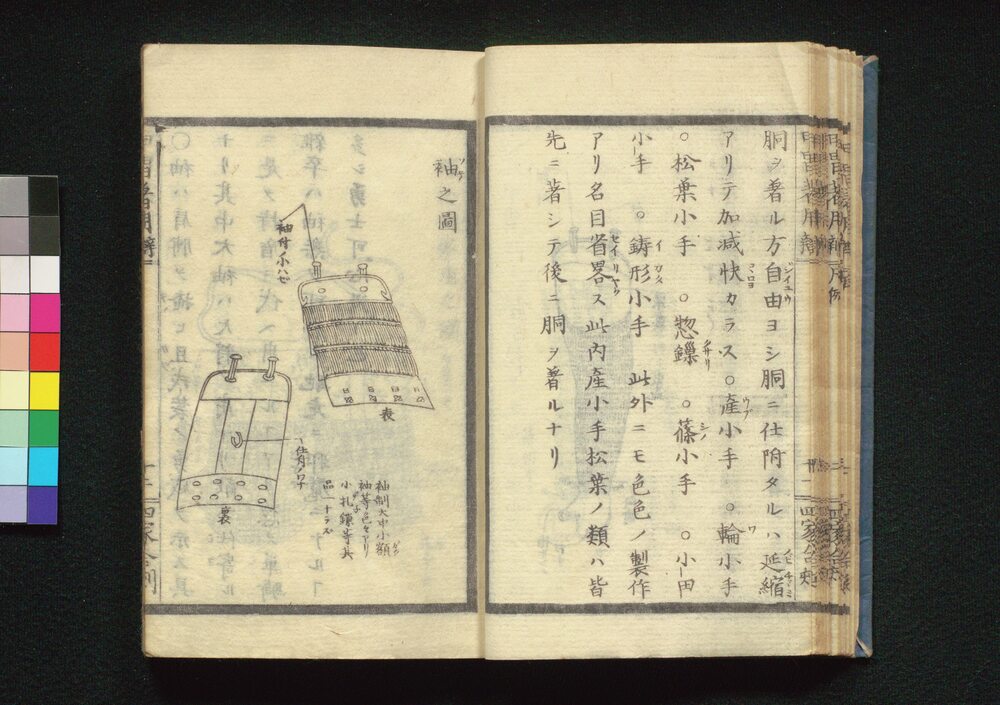 胴ヲ著ル方自由ヨシ胴ニ仕附タルハ延縮
アリテ加減快カラス○産小手 ○輪小手
○松葉小手 ○惣鏁 ○篠小手 ○小田
小手 ○鋳形小手 此外ニモ色色ノ製作
アリ名目省畧ス此内産小手松葉ノ類ハ皆
先ニ著シテ後ニ胴ヲ著ルナリ
袖之圖
袖付ノ小ハゼ
表
裏
袖制大中小額
袖等色々アリ
小札鎖等其
品一ナラズ